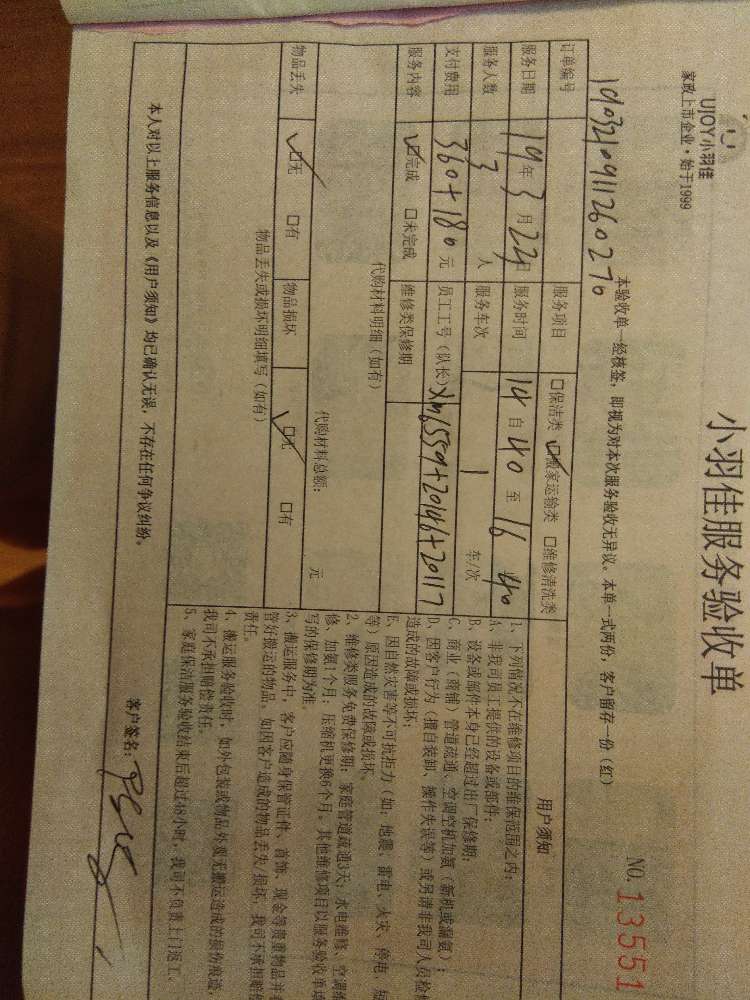 UJOY小羽佳
家政上市企业·始于1999
小羽佳服务验收单
NO. 13551
本验收单一经核签，即视为对本次服务验收无异议。本单一式两份，客户留存一份（红）
订单编号 服务项目 □保洁类 ☑搬家运输类 □维修清洗类
服务日期 19年3月22日 服务时间 14自40至16 40
服务人数 3人 服务车次 1 车/次
支付费用 360+180元 员工工号（队长）
服务内容 ☑完成 □未完成 维修类保修期
代购材料明细（如有）
代购材料总额： 元
物品丢失 ☑无 □有 物品损坏 ☑无 □有
物品丢失或损坏明细填写（如有）
用户须知
1、下列情况不在维修项目的维保范围之内：
A、非我司员工提供的设备或部件；
B、设备或部件本身已经超过出厂保修期；
C、商业（商铺）管道疏通、空调空机加氨（新机或漏氨）；
D、因客户行为（擅自装卸、操作失误等）或另请非我司人员检
造成的故障或损坏；
E、因自然灾害等不可抗拒力（如：地震、雷电、火灾、停电、
等）原因造成的故障或损坏。
2、维修类服务免费保修期：家庭管道疏通3天；水电维修、空调
修、加氨1个月；压缩机更换6个月。其他维修项目以服务验收单
写的保修期为准。
3、搬运服务中，客户应随身保管证件、首饰、现金等贵重物品并
管好搬运的物品。如因客户造成的物品丢失/损坏，我司不承担赔
责任。
4、搬运服务验收时，如外包装或物品外观无搬运造成的损伤痕迹，
我司不承担赔偿责任。
5、家庭保洁服务验收结束后超过48小时，我司不负责上门返工。
本人对以上服务信息以及《用户须知》均已确认无误，不存在任何争议纠纷。
客户签名：